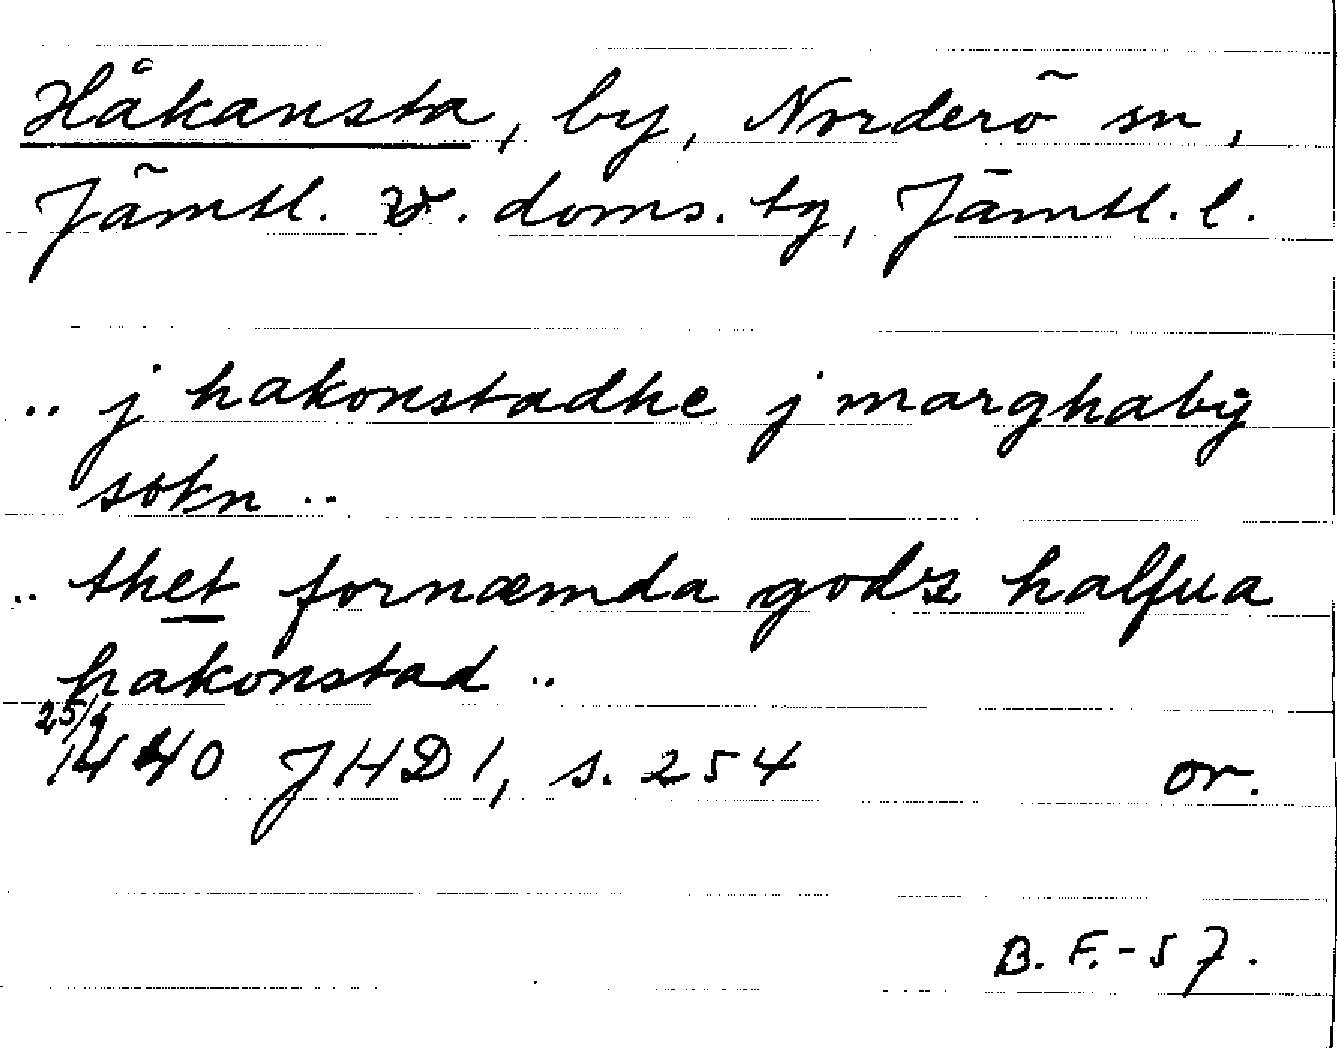 Håkansta, by, Norderö sn,
Jämtl. v. doms. tg, Jämtl. l.
.. j hakonstadhe j marghaby
sokn ..
.. thet fornæmda godz halfua
hakonstad ..
25/4
1440 JHD 1, s. 254 or.
B. F. - 57.